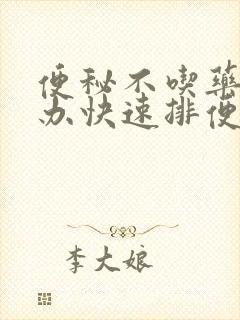 便秘不喫藥
办快速排便
李大娘